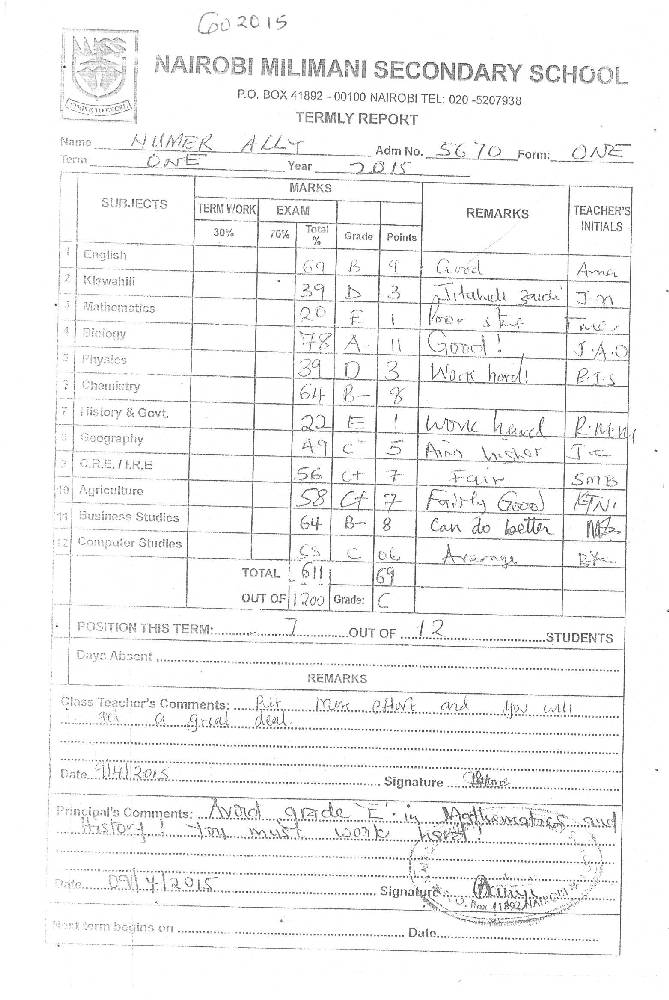 Go 2015
NMSS
NAIROBI MILIMANI SECONDARY SCHOOL
P.O. BOX 41892 - 00100 NAIROBI TEL: 020 -5207938
TERMLY REPORT
Name NUMER ALLY Adm No. 5670 Form: ONE
Term ONE Year 2015
SUBJECTS MARKS REMARKS TEACHER'S INITIALS
TERM WORK EXAM
30% 70% Total % Grade Points
1 English 69 B 9 Good
2 Kiswahili 39 D 3 Jitahidi zaidi J.N
3 Mathematics 20 E 1 Poor
4 Biology 78 A 11 Good! J.A.O
5 Physics 39 D 3 Work hard! P.T.S
6 Chemistry 64 B- 8
7 History & Govt. 22 E 1 Work hard
8 Geography 49 C- 5 Aim higher
9 C.R.E. / I.R.E 56 C+ 7 Fair SMB
10 Agriculture 58 C+ 7 Fairly Good
11 Business Studies 64 B- 8 Can do better
12 Computer Studies C 06 Average
TOTAL 611 69
OUT OF 1200 Grade: C
POSITION THIS TERM: 7 OUT OF 12 STUDENTS
Days Absent
REMARKS
Class Teacher's Comments: Put more effort and you will
a great deal.
Date 9/4/2015 Signature
Principal's Comments: Avoid grade 'E' in Mathematics and
History! You must work hard!
Date 09/4/2015 Signature
P.O. Box 41892 NAIROBI
Next term begins on Date